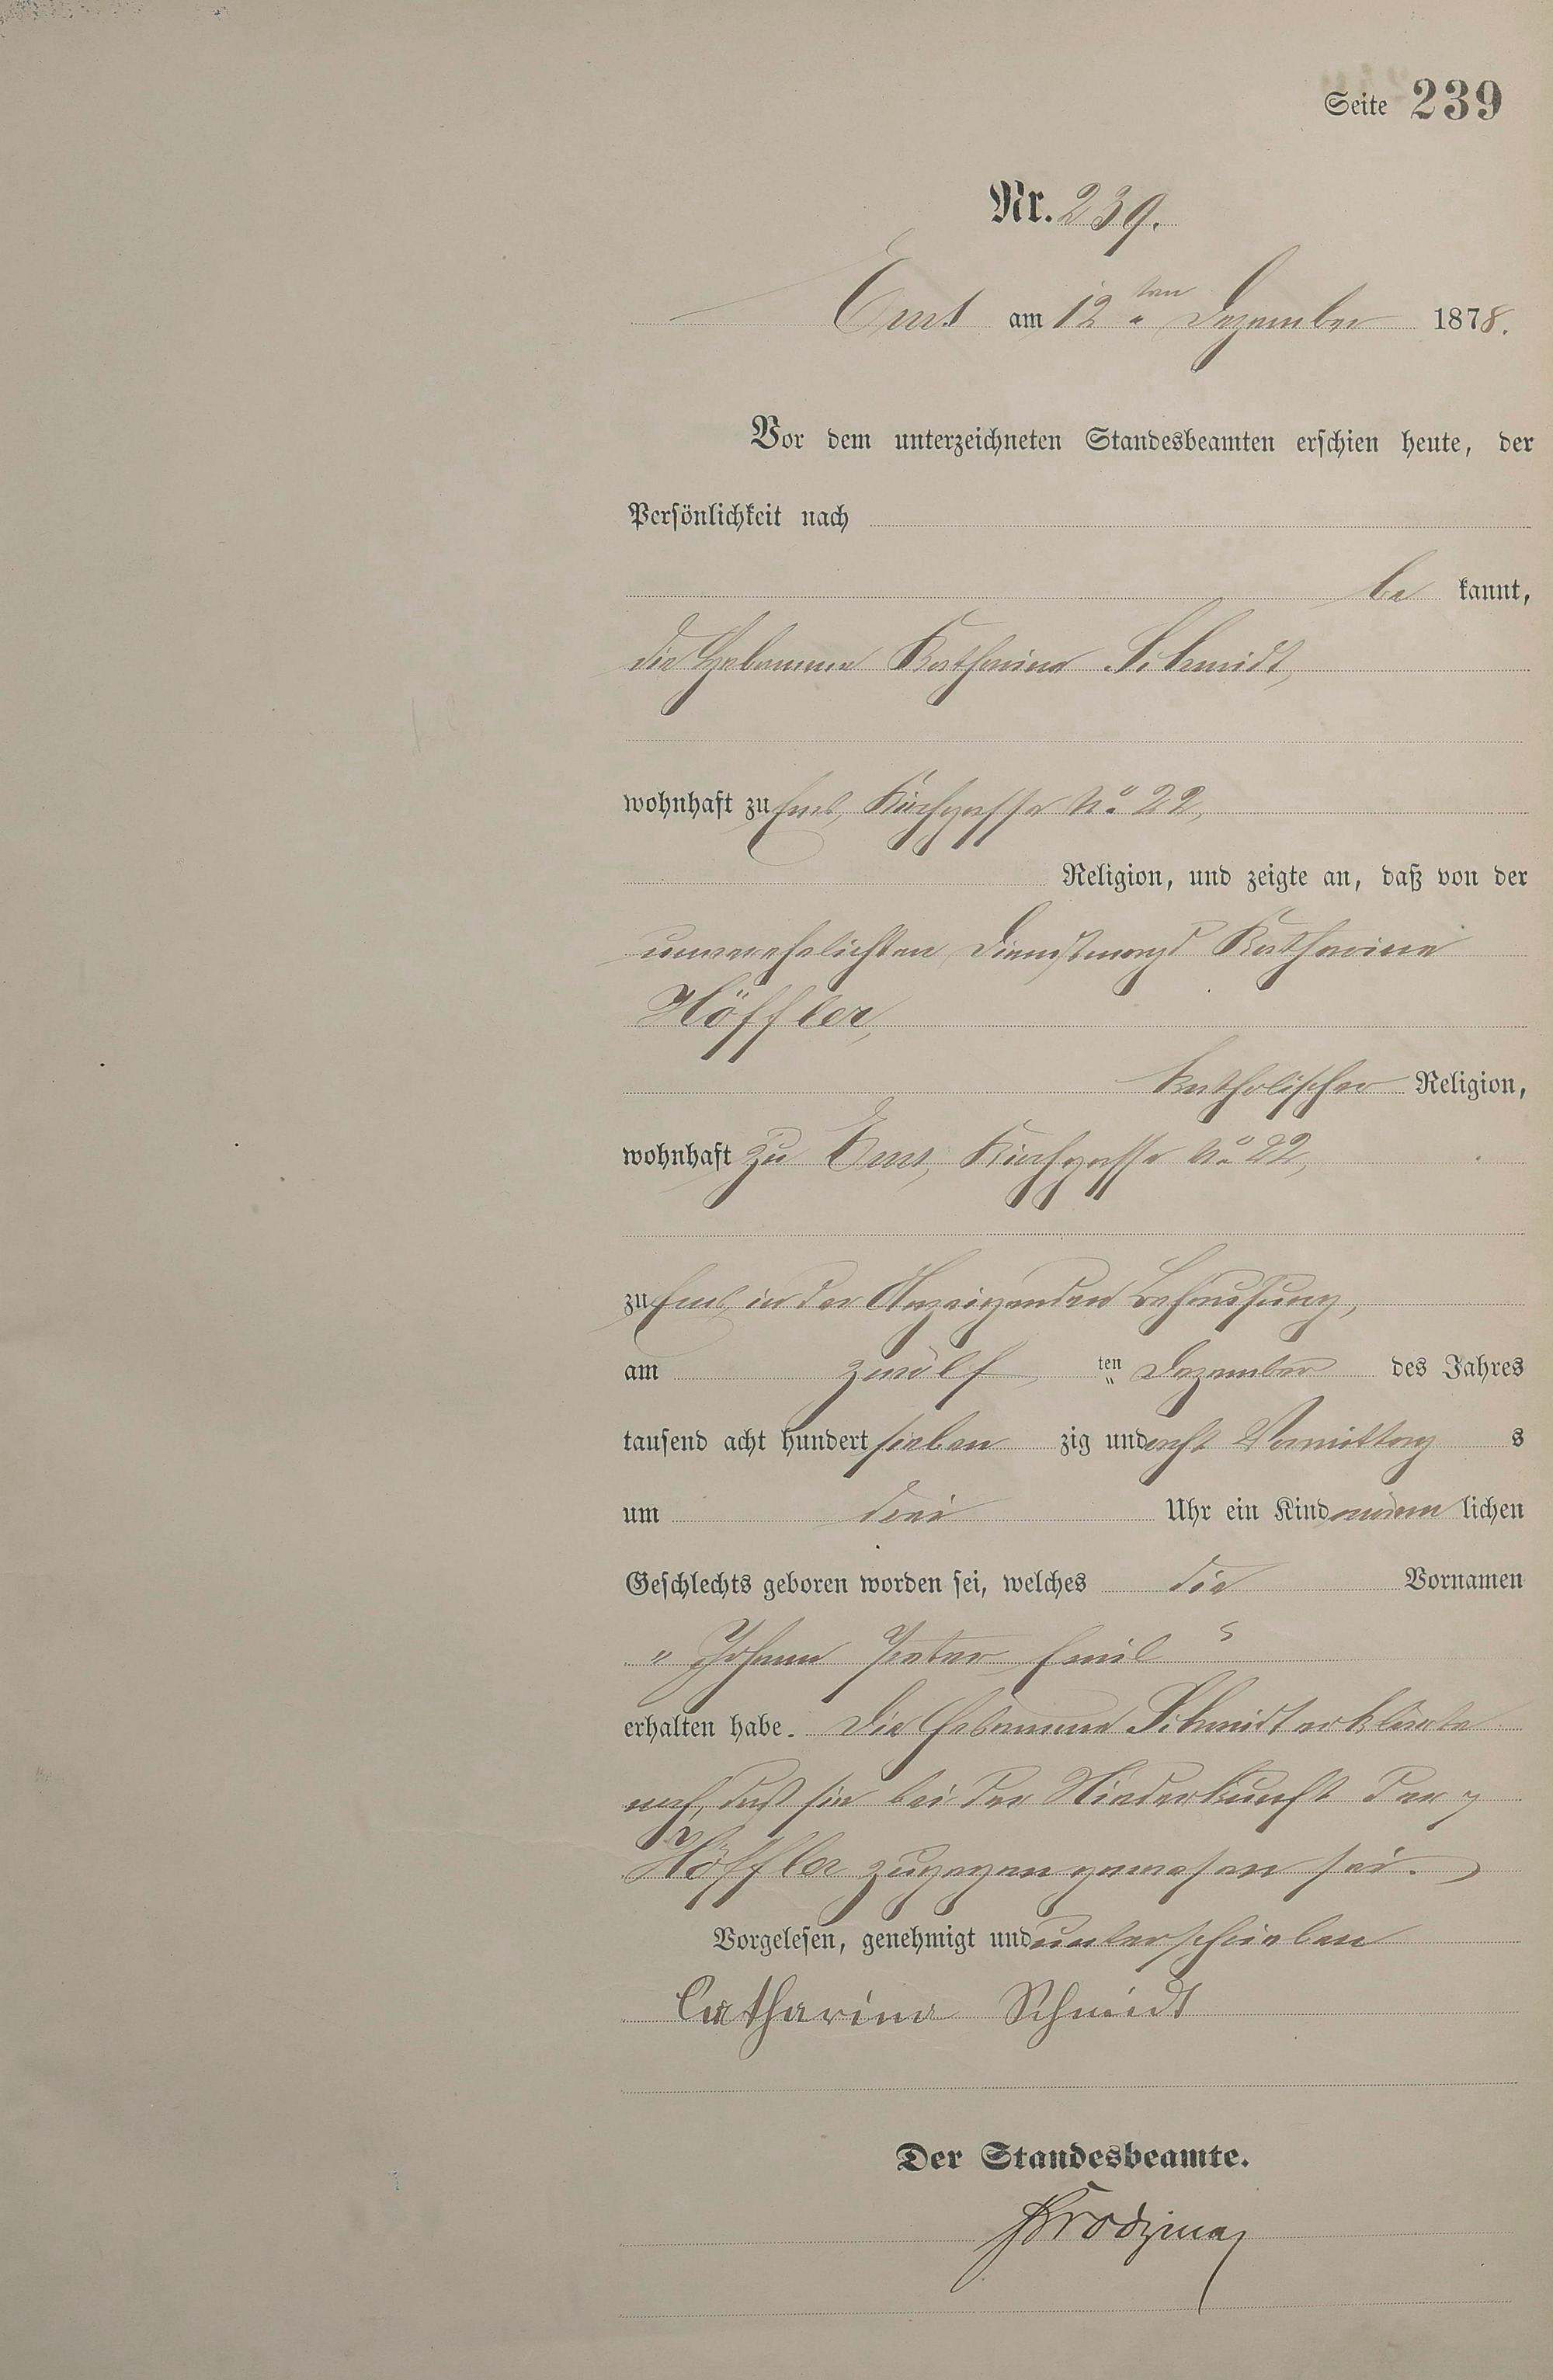 Seite 239
Nr. 239.
Ems am 12ten Dezember 1878.
Vor dem unterzeichneten Standesbeamten erschien heute, der
Persönlichkeit nach
be kannt,
die Hebamme Katharina Schmidt,
wohnhaft zu Ems, Kirchgasse No 22,
Religion, und zeigte an, daß von der
unverehelichten Dienstmagd Katharina
Höffler,
katholischer Religion,
wohnhaft zu Ems, Kirchgasse No 22,
zu Ems in der Anzeigenden Behausung,
am zwölf ten Dezember des Jahres
tausend acht hundert sieben zig und acht Vormittag s
um drei Uhr ein Kind männ lichen
Geschlechts geboren worden sei, welches die Vornamen
„Johann Peter Emil“
erhalten habe. Die Hebamme Schmidt erklärte
noch, daß sie bei der Niederkunft der
Höffler zugegen gewesen sei.
Vorgelesen, genehmigt und unterschrieben
Catharina Schmidt
Der Standesbeamte.